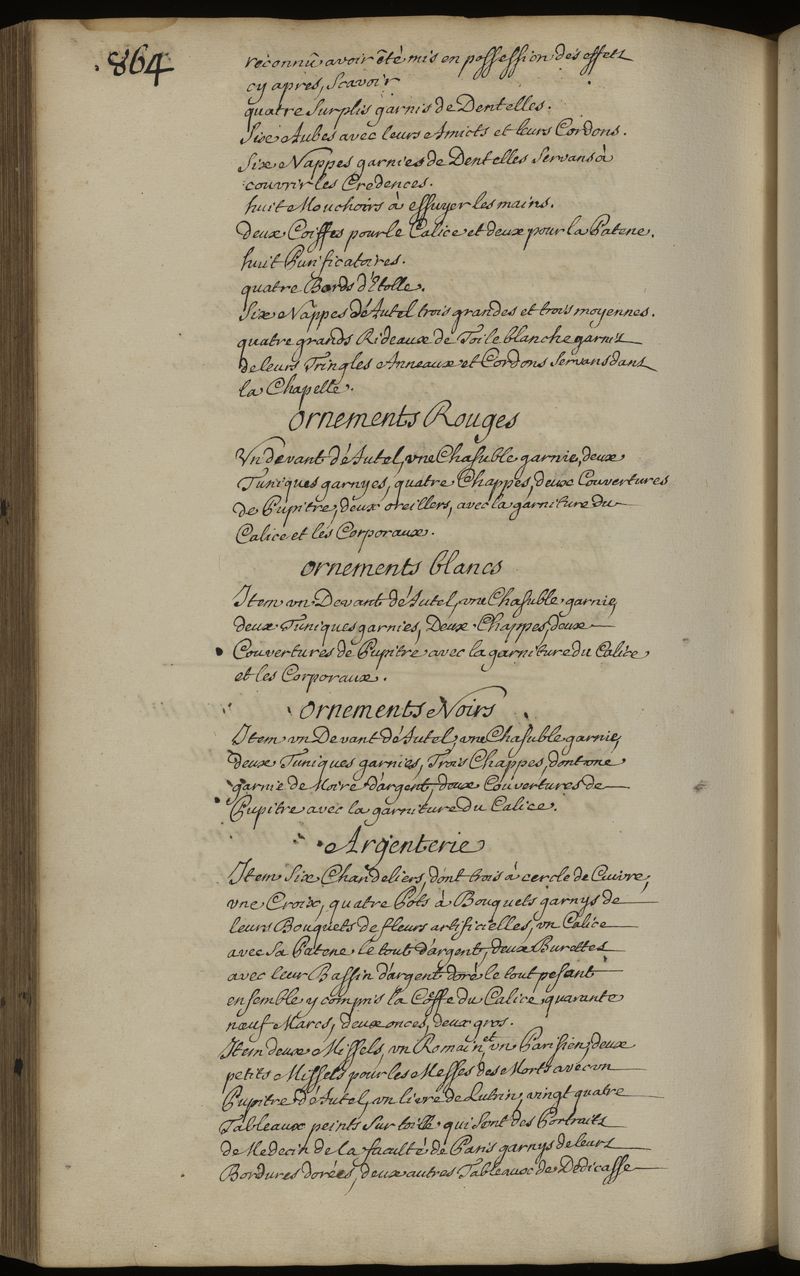 864
reconnû avoir êté mis en possession des effets
cy apres, Scavoir
quatre Surplis garnis de Dentelles.
Six Aubes avec leurs Amicts et leurs Cordons.
Six Nappes garnies de Dentelles Servans à
couvrir les Credences.
huit Mouchoirs à essuyer les mains.
Deux Coiffes pour le Calice et deux pour la Patene.
huit Purificatoires.
quatre Bords d'Etolle.
Six Nappes d'Autel trois grandes et trois moyennes.
quatre grands Rideaux de Toile blanche garnis
de leurs Tringles Anneaux et Cordons Servans dans
la Chapelle.
Ornements Rouges
Un devant d'Autel, une Chasuble garnie, deux
Tuniques garnyes, quatre Chappes, deux Couvertures
de Pupitre, deux oreillers, avec la garniture du
Calice et les Corporaux.
Ornements blancs
Item un Devant d'Autel, une Chasuble garnie,
deux Tuniques garnies, Deux Chappes, deux
Couvertures de Pupitre avec la garniture du Calice
et les Corporaux.
Ornements Noirs
Item un Devant d'Autel, une Chasuble garnie,
deux Tuniques garnies, Trois Chappes, dont une
garnie de Moire d'argent, deux Couvertures de
Pupitre avec la garniture du Calice.
Argenterie
Item Six Chandeliers, dont trois à cercle de Cuivre,
une Croix, quatre Pots à Bouquets garnys de
leurs Bouquets de fleurs artificielles, un Calice
avec Sa Patene le tout d'argent, deux Burettes
avec leur Bassin d'argent doré le tout pesant
ensemble y compris la Coëffe du Calice quarante
nœuf Marcs, deux onces, deux gros.
Item deux Missels, un Romain, et un Parisien, deux
petits Missels pour les Messes des Morts avec un
Pupitre d'Autel, un livre de Lutrin, vingt quatre
Tableaux peints Sur toille qui Sont des Portraits
de Medecin de la faculté de Paris garnys de leurs
Bordures dorées, deux autres Tableaux de Dédicasse